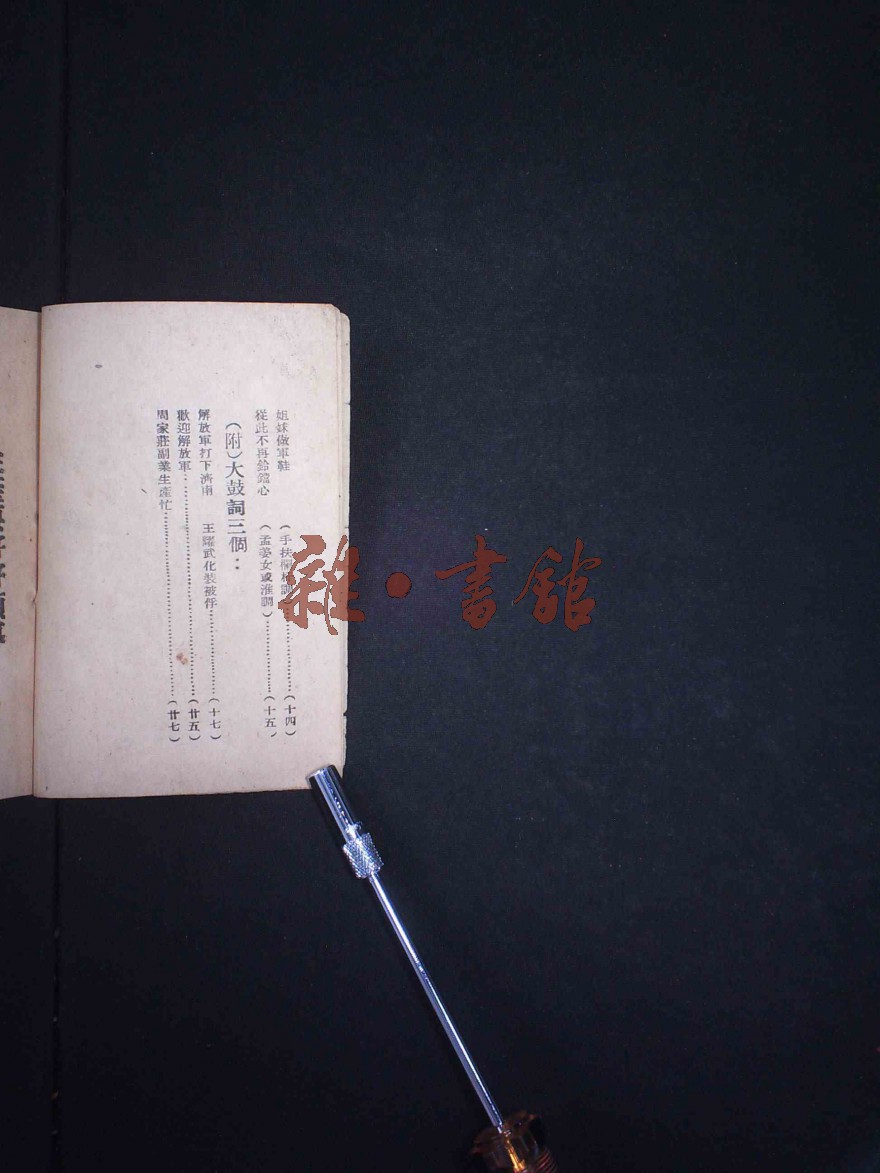 姐妹做軍鞋 (手扶欄杆調)……(十四)
從此不再鎗鎗心 (孟姜女或淮調)……(十五)
(附)大鼓詞三個:
解放軍打下濟南 王耀武化裝被俘……(十七)
歡迎解放軍……(廿五)
周家莊副業生產忙……(廿七)
雜·書館